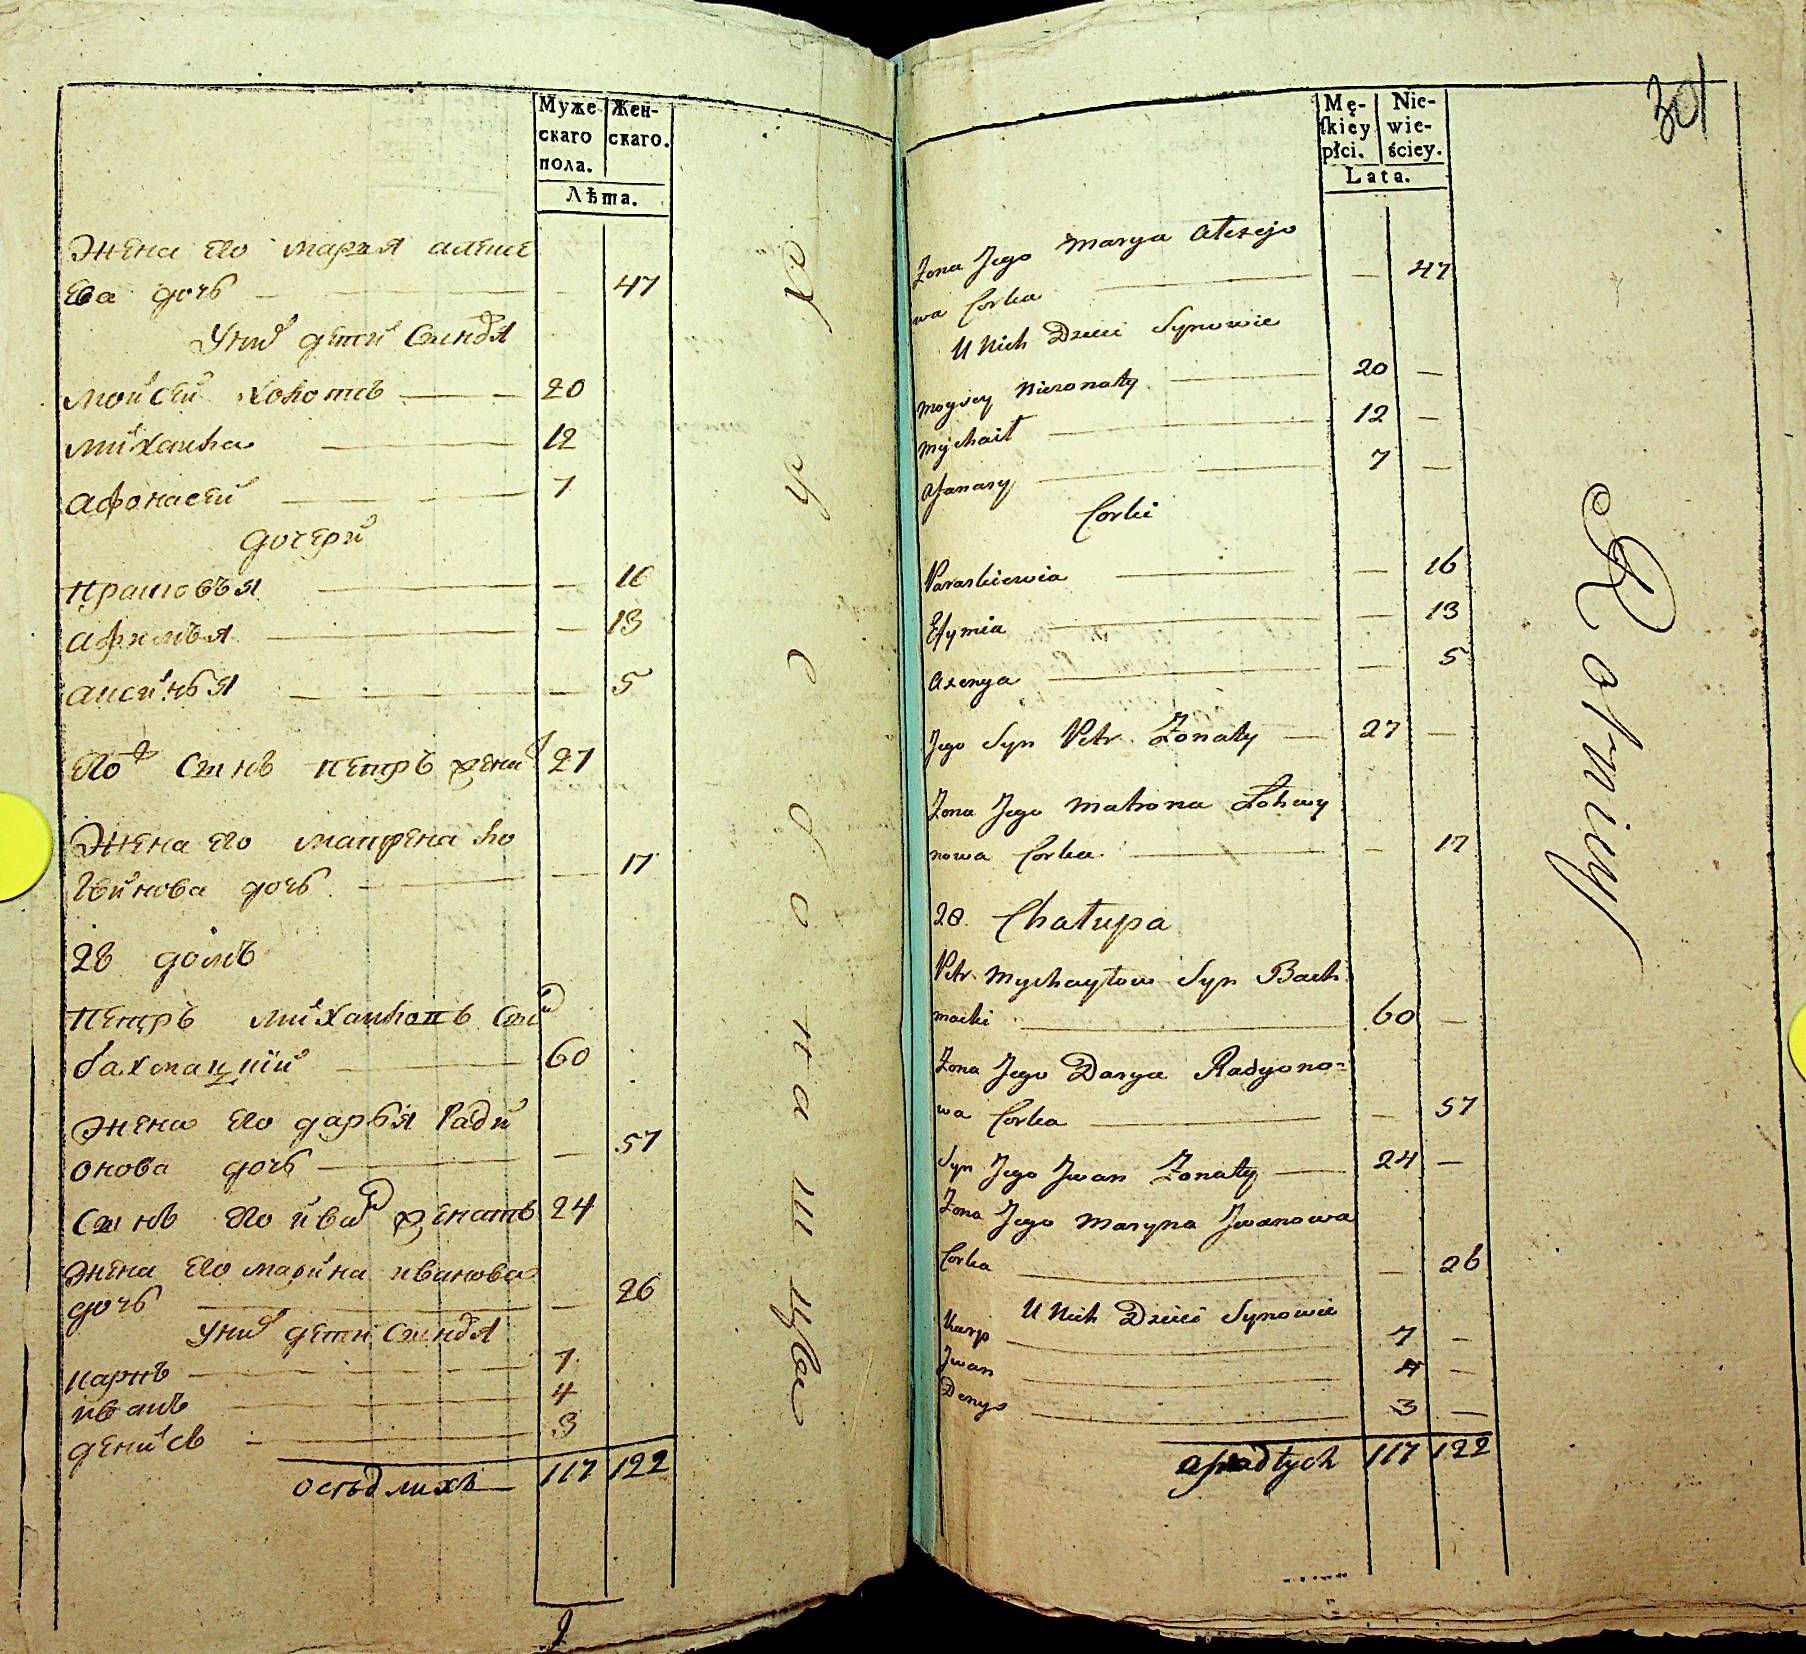 Муже
скаго
пола.
Жен-
скаго.
Лѣта.
Жена Его марья алексе
Ева дочь
47
Унихъ дети Синовя
мойсей холостъ 20
михаила 12
афонасей 7
дочери
прасковья 16
афимья 13
аксинья 5
Его Синъ петръ женатъ 27
Жена Его матрена ло
гвинова дочь 17
28 домъ
петръ михаиловъ Синъ
бахмацкий 60
Жена Его дарья Ради
онова дочь 57
Синъ Его иванъ женатъ 24
Жена Его марина иванова
дочь 26
Унихъ дети Синовя
карпъ 7
иванъ 4
денисъ 3
оседлихъ 117 122
301
Mę-
skiey
płci.
Nie-
wie-
ściey.
Lata.
Żona Jego Marya Alexejo
wa Corka 47
U Nich Dzieci Synowie
Moysey Nieżonaty 20
Mychaił 12
Afanasy 7
Corki
Paraskiewia 16
Efymia 13
Axenya 5
Jego Syn Petr Żonaty 27
Żona Jego Matrona Łohwy
nowa Corka 17
28. Chałupa
Petr Mychayłow Syn Bach
macki 60
Żona Jego Darya Radyono=
wa Corka 57
Syn Jego Jwan Żonaty 24
Żona Jego Maryna Jwanowa
Corka 26
U Nich Dzieci Synowie
Karp 7
Jwan 4
Denys 3
osiadłych 117 122
Rotmicy